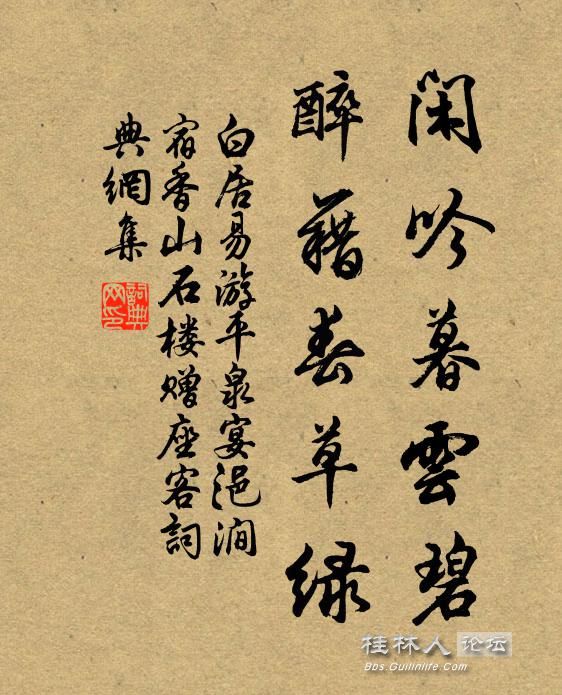 闲吟暮雲碧
醉藉春草绿
白居易游平泉宴浥涧
宿香山石楼赠座客詞
典網集
詞典
网印
桂林人论坛
Bbs.Guilinlife.Com